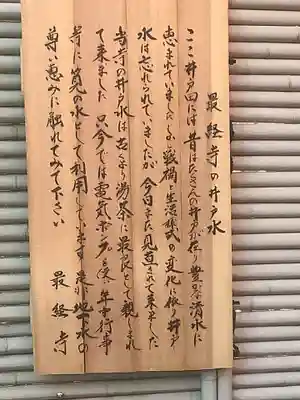 最経寺の井戸水
ここ井戸田には昔はたくさんの井戸が在り豊かな清水に
恵まれていましたしかし戦禍と生活様式の変化に依り井戸
水は忘れられていましたが今日また見直されて来ました
当寺の井戸水は古くより湯茶に最良として親しまれ
て来ました 只今では電気ポンプを使い年中行事
等に筧の水として利用しています 是非地下水の
尊い恵みに触れてみて下さい 最経寺